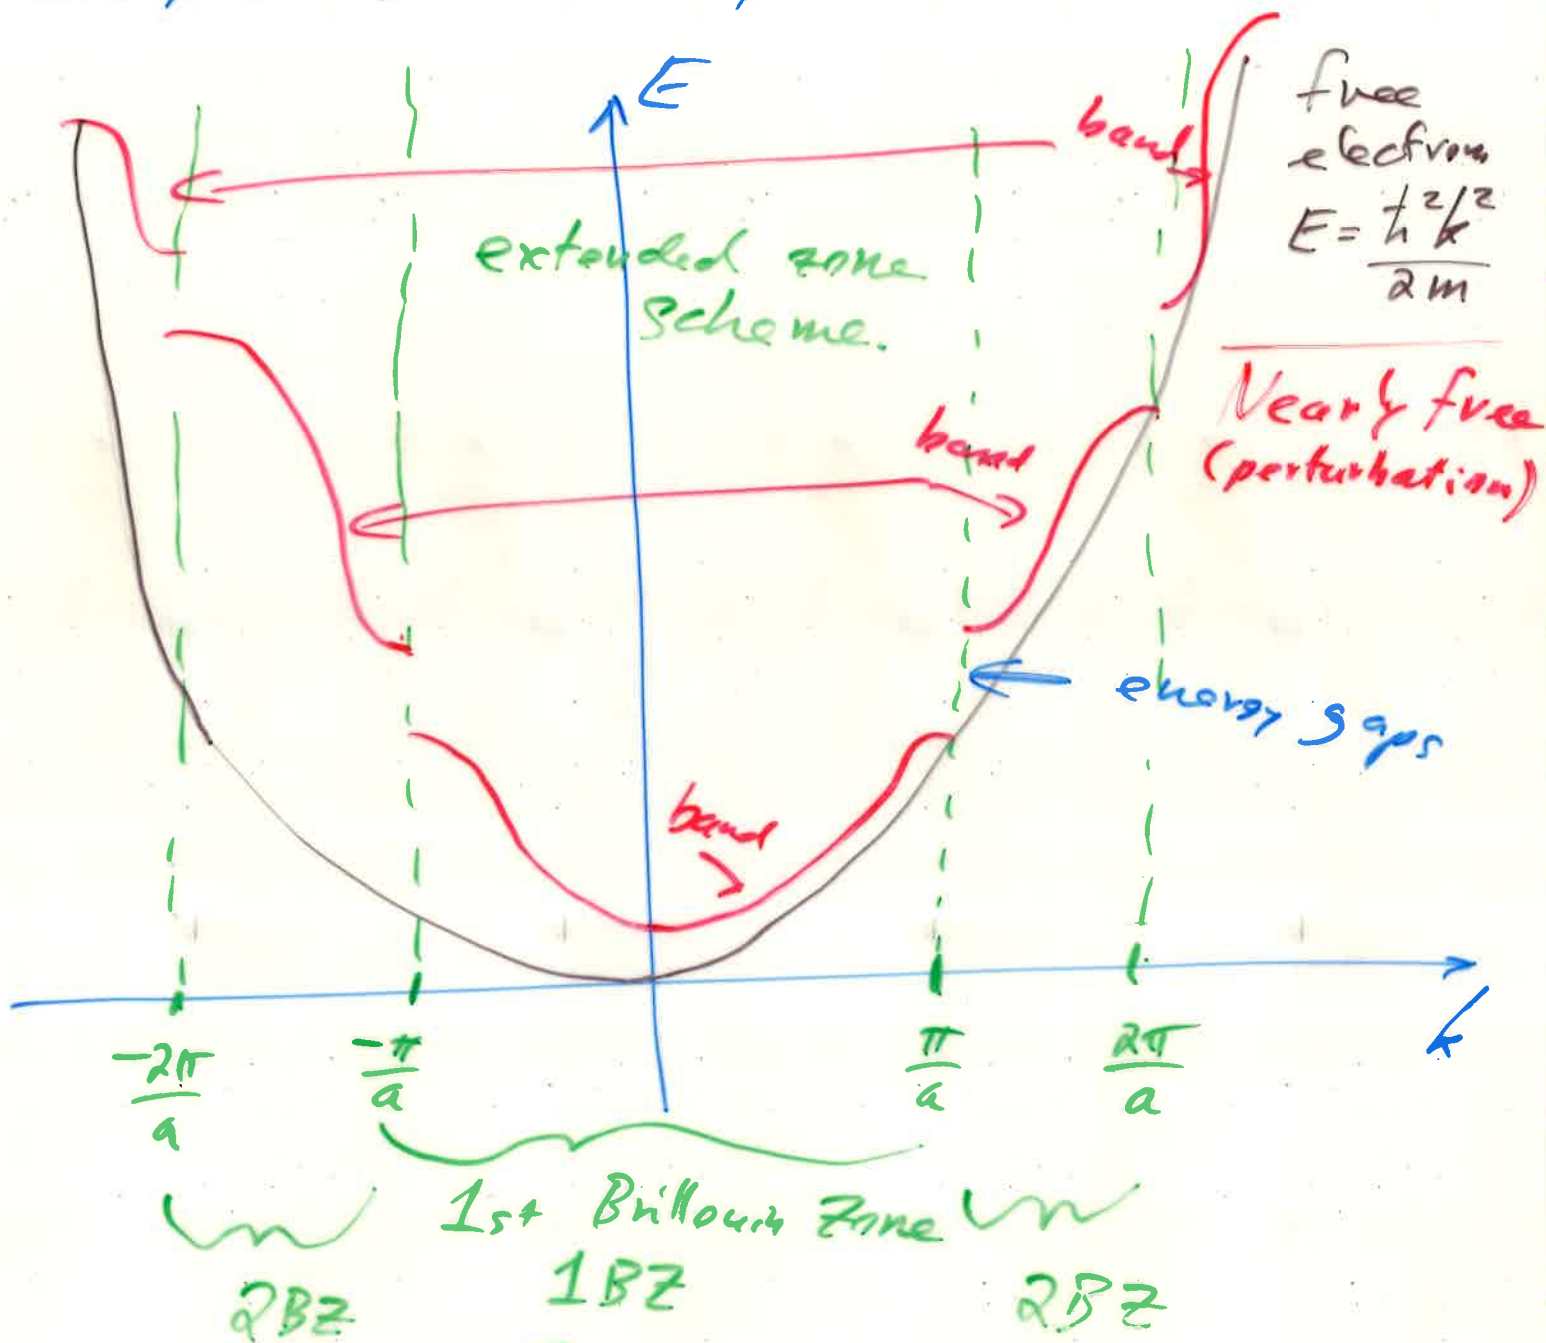 E
band
free
electron
E = ħ²k²/2m
extended zone
scheme.
Nearly free
(perturbation)
band
energy gaps
band
k
-2π/a
-π/a
π/a
2π/a
1st Brillouin Zone
1BZ
2BZ
2BZ